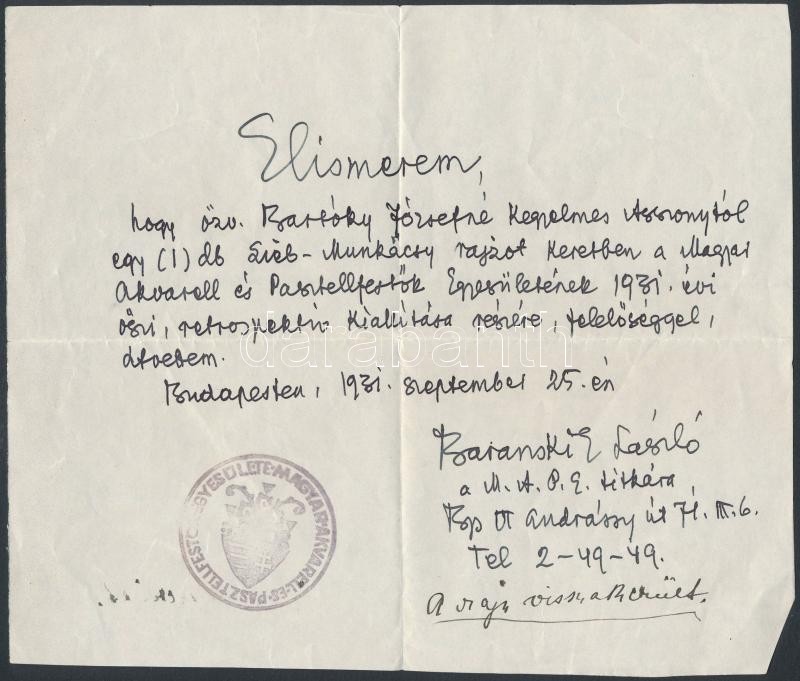 Elismerem,
hogy özv. Bartóky Józsefné Kegyelmes Asszonytól
egy (1) db Lieb-Munkácsy rajzot keretben a Magyar
Akvarell és Pasztellfestők Egyesületének 1931. évi
őszi, retrospektiv kiállitása részére, felelőséggel,
átvettem.
Budapesten, 1931. szeptember 25.-én
Baranski E László
a M. A. P. E. titkára
Bp VI Andrássy út 71. III. 6.
Tel 2-49-49.
A rajz visszakerült.
EGYESÜLETE·MAGYAR·AKVAREL·ÉS·PASZTELLFESTŐK
darabanth